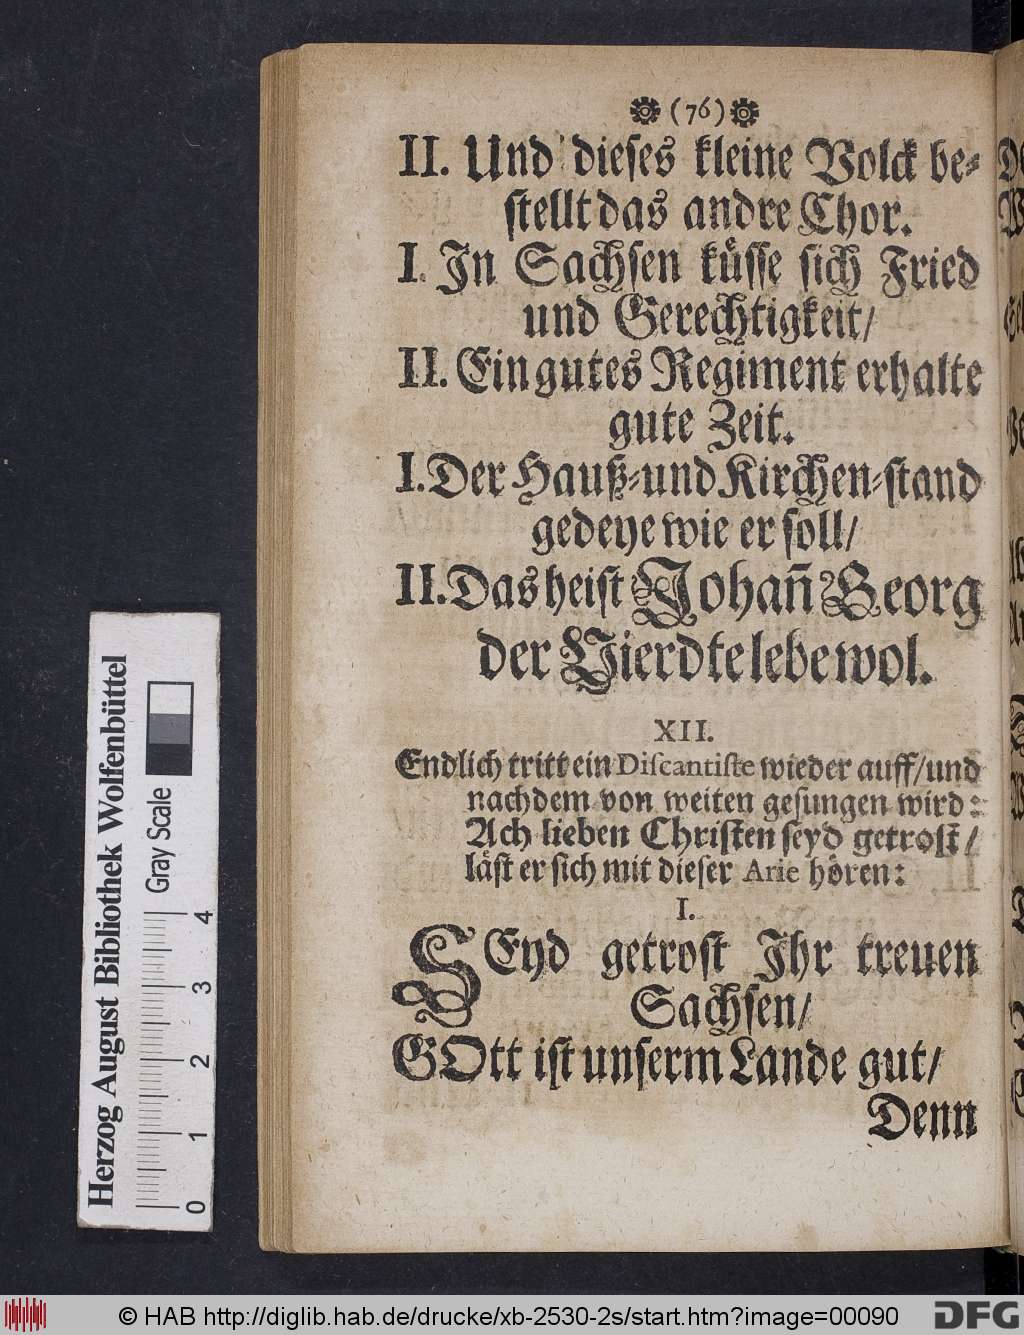 (76)
II. Und dieses kleine Volck be-
stellt das andre Chor.
I. In Sachsen küsse sich Fried
und Gerechtigkeit/
II. Ein gutes Regiment erhalte
gute Zeit.
I. Der Hauß-und Kirchen-stand
gedeye wie er soll/
II. Das heist Johan̄ Georg
der Vierdte lebe wol.
XII.
Endlich tritt ein Discantiste wieder auff/und
nachdem von weiten gesungen wird:
Ach lieben Christen seyd getrost/
läst er sich mit dieser Arie hören:
I.
SEyd getrost Ihr treuen
Sachsen/
GOtt ist unserm Lande gut/
Denn
Herzog August Bibliothek Wolfenbüttel
Gray Scale
0 1 2 3 4
© HAB http://diglib.hab.de/drucke/xb-2530-2s/start.htm?image=00090
DFG